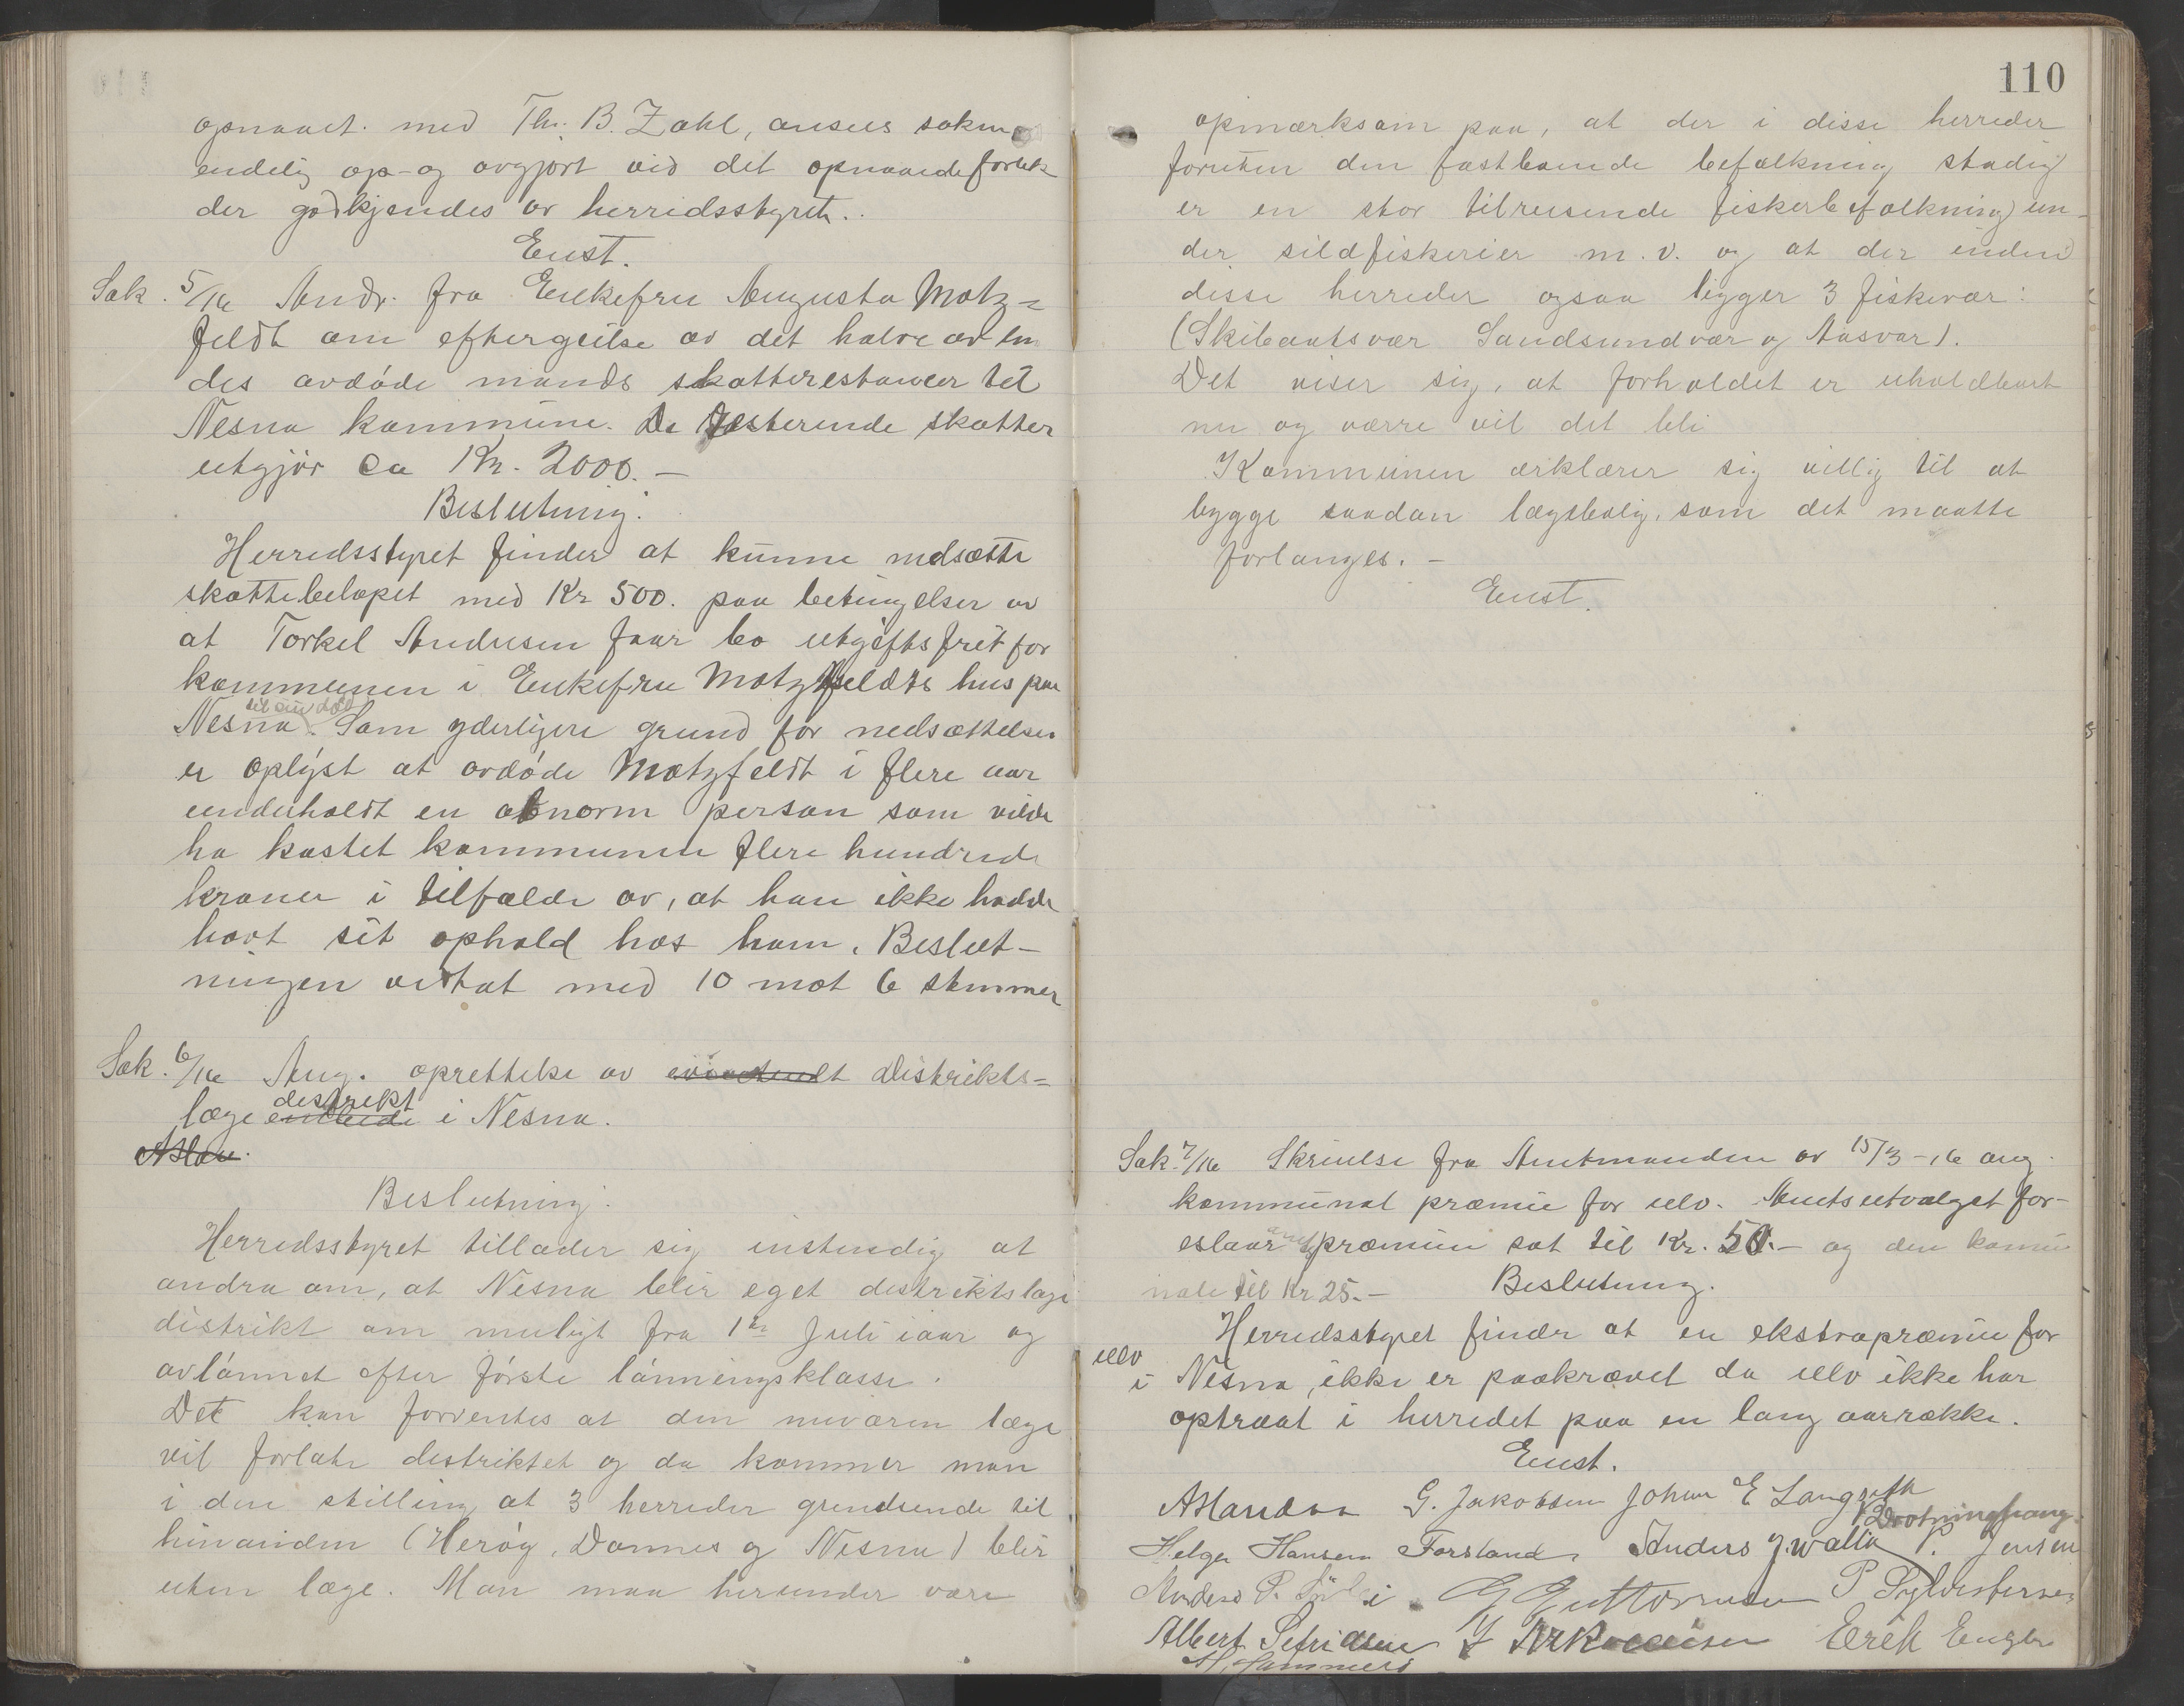 opnaaet med Th. B. Zahl, ansees saken
endelig op- og avgjort ved det opnaaede forlik
der godkjendes av herredsstyret.
Enst.
Sak. 5/16 Andr. fra Enkefru Augusta Motz=
feldt om eftergivelse av det halve av en
des avdøde mands skatterestancer til
Nesna kommune. De resterende skatter
utgjør ca Kr. 2000.—
Beslutning:
Herredsstyret finder at kunne nedsætte
skattebeløpet med Kr 500. paa betingelser av
at Torkel Andersen faar bo utgiftsfrit for
kommunen i Enkefru Motzfeldts hus paa
Nesna. Som yderligere grund for nedsættelsen
er oplyst at avdøde Motzfeldt i flere aar
underholdt en abnorm person som vilde
ha kostet kommunen flere hundrede
kroner i tilfælde av, at han ikke hadde
havt sit ophold hos ham. Beslut-
ningen vedtat med 10 mot 6 stemmer
Sak. 6/16 Ang. oprettelse av eventuelt Distrikts=
distrikt
læge embede i Nesna.
Beslutning:
Herredsstyret tillader sig instendig at
andra om, at Nesna blir eget distriktslæge
distrikt om muligt fra 1ste Juli iaar og
avlønnet efter første lønningsklasse.
Det kan forventes at den nuværen læge
vil forlate distriktet og da kommer man
i den stilling at 3 herreder grendsende til
hinanden (Herøy, Dønnes og Nesna) blir
uten læge. Man maa herunder være
110
opmerksom paa, at der i disse herreder
foruten den fastboende befolkning stadig
er en stor tilreisende fiskerbefolkning un-
der sildfiskerier m.v. og at der inden
disse herreder ogsaa ligger 3 fiskevær:
(Skibaatsvær Sandsundvær og Aasvær).
Det viser sig, at forholdet er uholdbart
nu og værre vil det bli
Kommunen erklærer sig villig til at
bygge saadan lægebolig, som det maatte
forlanges. —
Enst.
Sak. 7/16 Skrivelse fra Amtmanden av 15/3-16 ang.
kommunal præmie for ulv. Amtsutvalget for-
eslaar præmien sat til Kr. 50.— og den kommu
nale til Kr 25.— Beslutning.
Herredsstyret finder at en ekstrapræmie for
ulv
i Nesna, ikke er paakrævet da ulv ikke har
optraat i herredet paa en lang aarrække.
Enst.
G. Jakobsen Johan E Langseth
Helge Hansen Forsland. Anders J. Wallia P. Jensen
Anders P. G Guttormsen P Sylvestersen
Albert Erik Enger